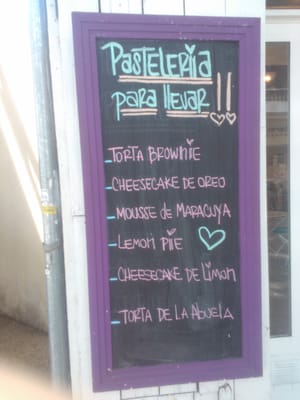 Pasteleria
para llevar!!
_Torta Brownie
_Cheesecake de oreo
_Mousse de Maracuya
_Lemon Piie
_Cheesecake de Limon
_Torta de la Abuela